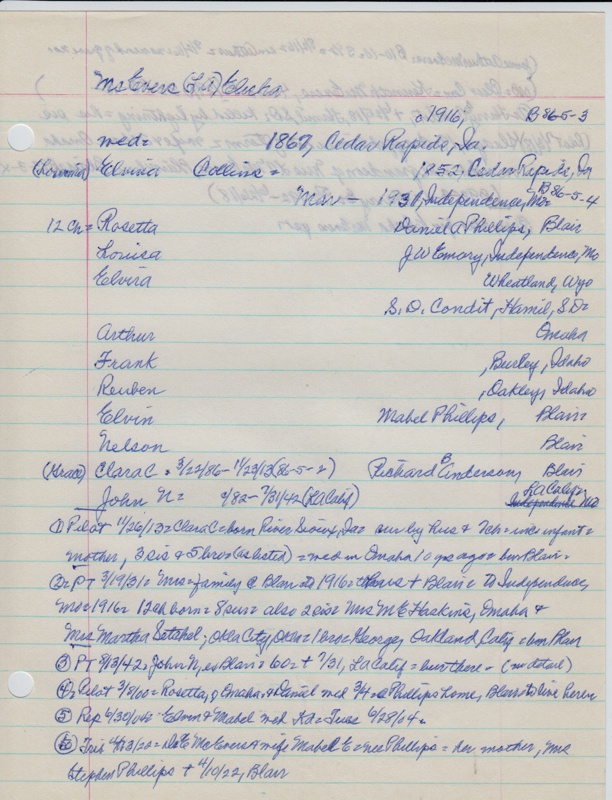 McEvers (F.A.) Elisha
o 1916, B 865-3
med = 1867, Cedar Rapids, Ia.
(Louvinia) Elvira Collins = 1852, Cedar Rapids, Ia
Mar - 1931, Independence, Mo = B86-5-4
12 Ch = Rosetta Daniel A Phillips, Blair
Louisa J W Emory, Independence, Mo
Elvira Wheatland, Wyo
S. D. Condit, Hamil, S.D.=
Arthur Omaha
Frank , Burley, Idaho
Reuben , Oakley, Idaho
Elvin Mabel Phillips, Blair
Nelson Blair
(Grace) Clara C = 3/22/86 - 11/23/13 (86-5-2) Richard B Anderson, Blair
John N = 9/82 - 7/31/42 (LA Calif) LA Calif = Independence Mo
① Pilot 11/26/13 = Clara C = born River Sioux, Ia = sur by hus & 7ch = inc infant =
mother, 3 sis & 5 bros (as listed) = med in Omaha 10 yrs ago = bur Blair =
② = PT 3/19/31 = Mrs = family @ Blair to 1916 = + Blair = to Independence,
Mo = 1916 = 12 ch born = 8 sur = also 2 sis = Mrs M E Haskins, Omaha &
Mrs Martha ; Okla City, Okla = 1 bro = George, Oakland, Calif = bur Blair
③ PT 8/13/42 = John N, ex Blair = 60 = + 7/31, LA Calif = bur there - (no detail)
④ Pilot 3/8/00 = Rosetta, g Omaha, & Daniel med 3/4 = @ Phillips home, Blair = to live here =
⑤ Rep 6/30/04 = Elvin & Mabel med = Tues 6/28/04 =
⑥ Trib 4/13/22 = McEvers & wife Mabel E = nee Phillips = her mother, Mrs
Stephen Phillips + 4/10/22, Blair